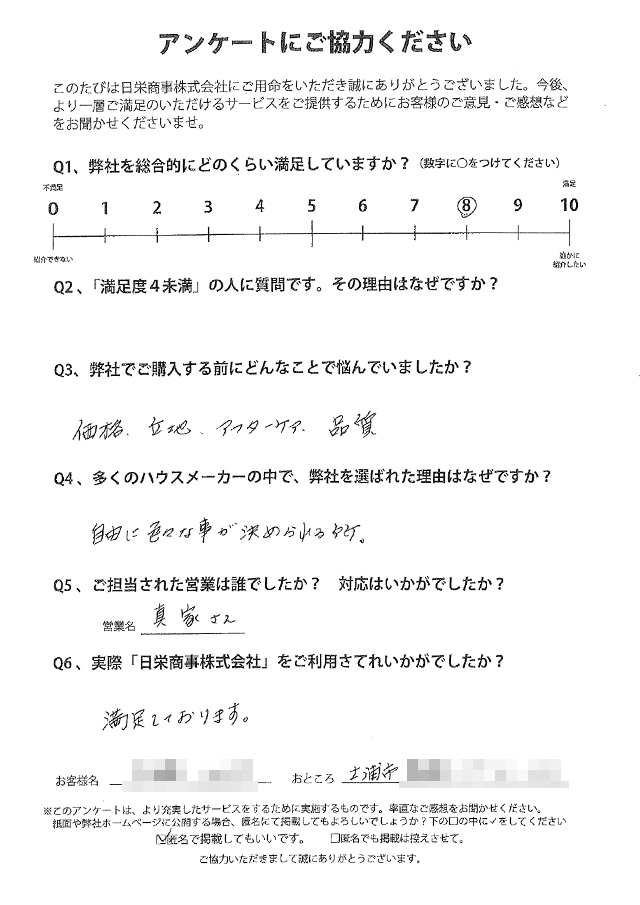 アンケートにご協力ください
このたびは日栄商事株式会社にご用命をいただき誠にありがとうございました。今後、
より一層ご満足のいただけるサービスをご提供するためにお客様のご意見・ご感想など
をお聞かせくださいませ。
Q1、弊社を総合的にどのくらい満足していますか？（数字に○をつけてください）
不満足 満足
0 1 2 3 4 5 6 7 8 9 10
紹介できない 誰かに
紹介したい
Q2、「満足度４未満」の人に質問です。その理由はなぜですか？
Q3、弊社でご購入する前にどんなことで悩んでいましたか？
価格、立地、アフターケア、品質
Q4、多くのハウスメーカーの中で、弊社を選ばれた理由はなぜですか？
自由に色々な事が決められる所。
Q5、ご担当された営業は誰でしたか？　対応はいかがでしたか？
営業名 真家さん
Q6、実際「日栄商事株式会社」をご利用さてれいかがでしたか？
満足しております。
お客様名 おところ 土浦市
※このアンケートは、より充実したサービスをするために実施するものです。率直なご感想をお聞かせください。
紙面や弊社ホームページに公開する場合、匿名にて掲載してもよろしいでしょうか？下の□の中に✓をしてください
☑匿名で掲載してもいいです。　□匿名でも掲載は控えさせて。
ご協力いただきまして誠にありがとうございます。